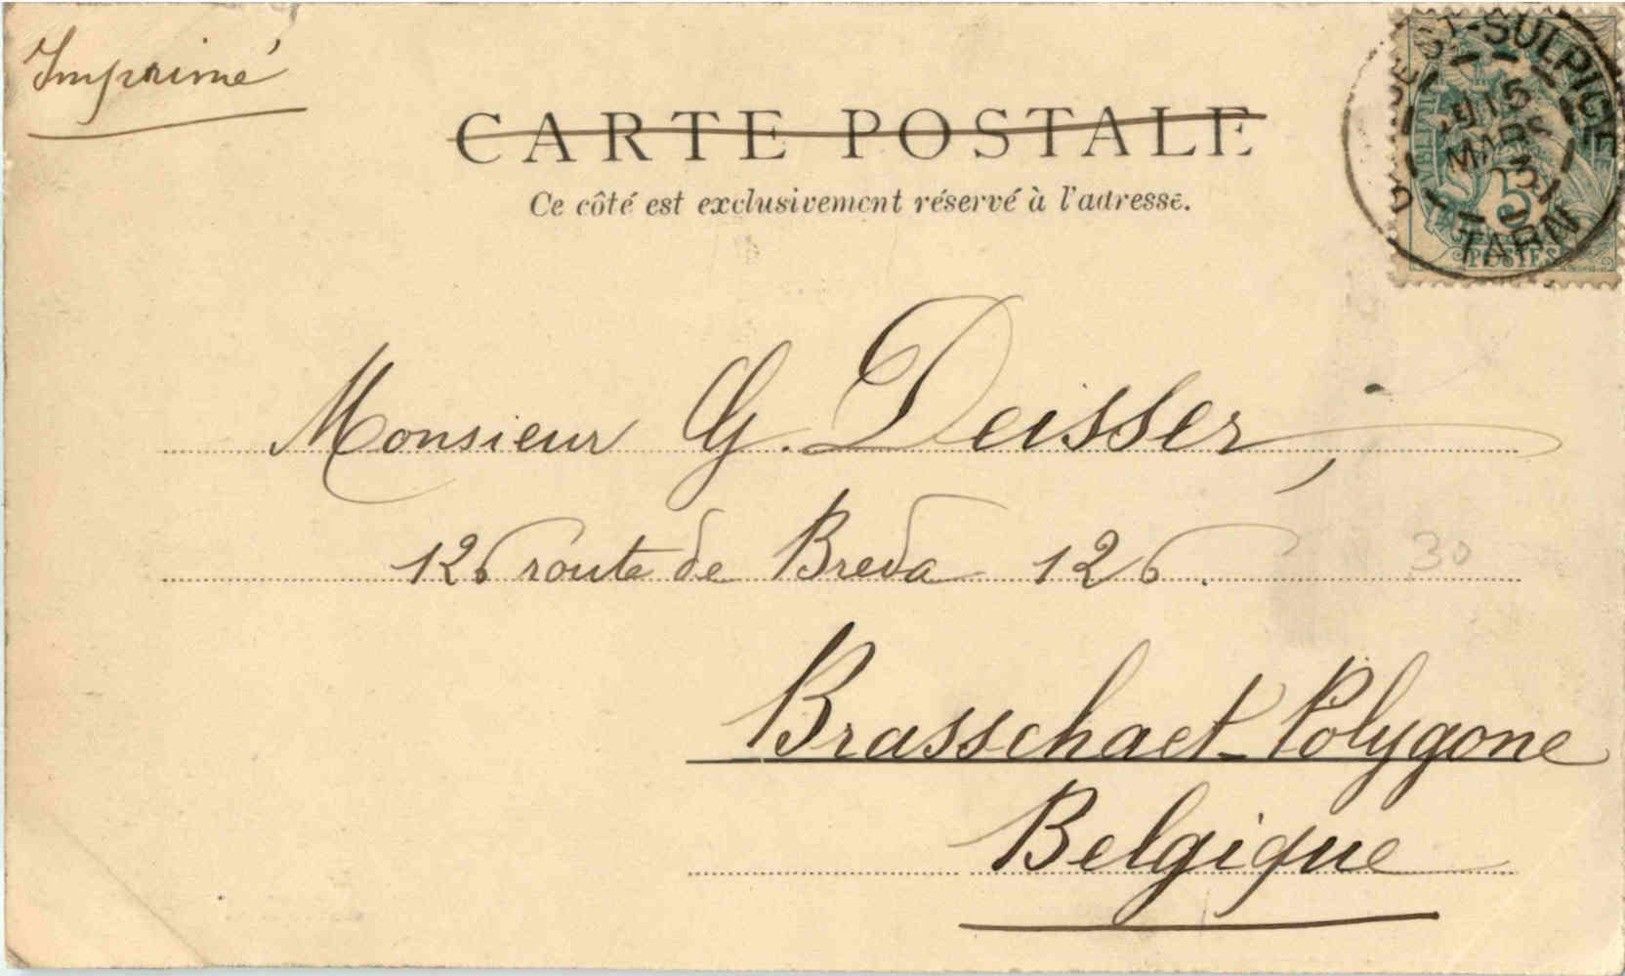 Imprimé
CARTE POSTALE
Ce côté est exclusivement réservé à l'adresse.
ST-SULPICE
15
MARS
TARN
5
POSTES
Monsieur G. Deisser,
126 route de Breda 126.
30
Brasschaet-Polygone
Belgique